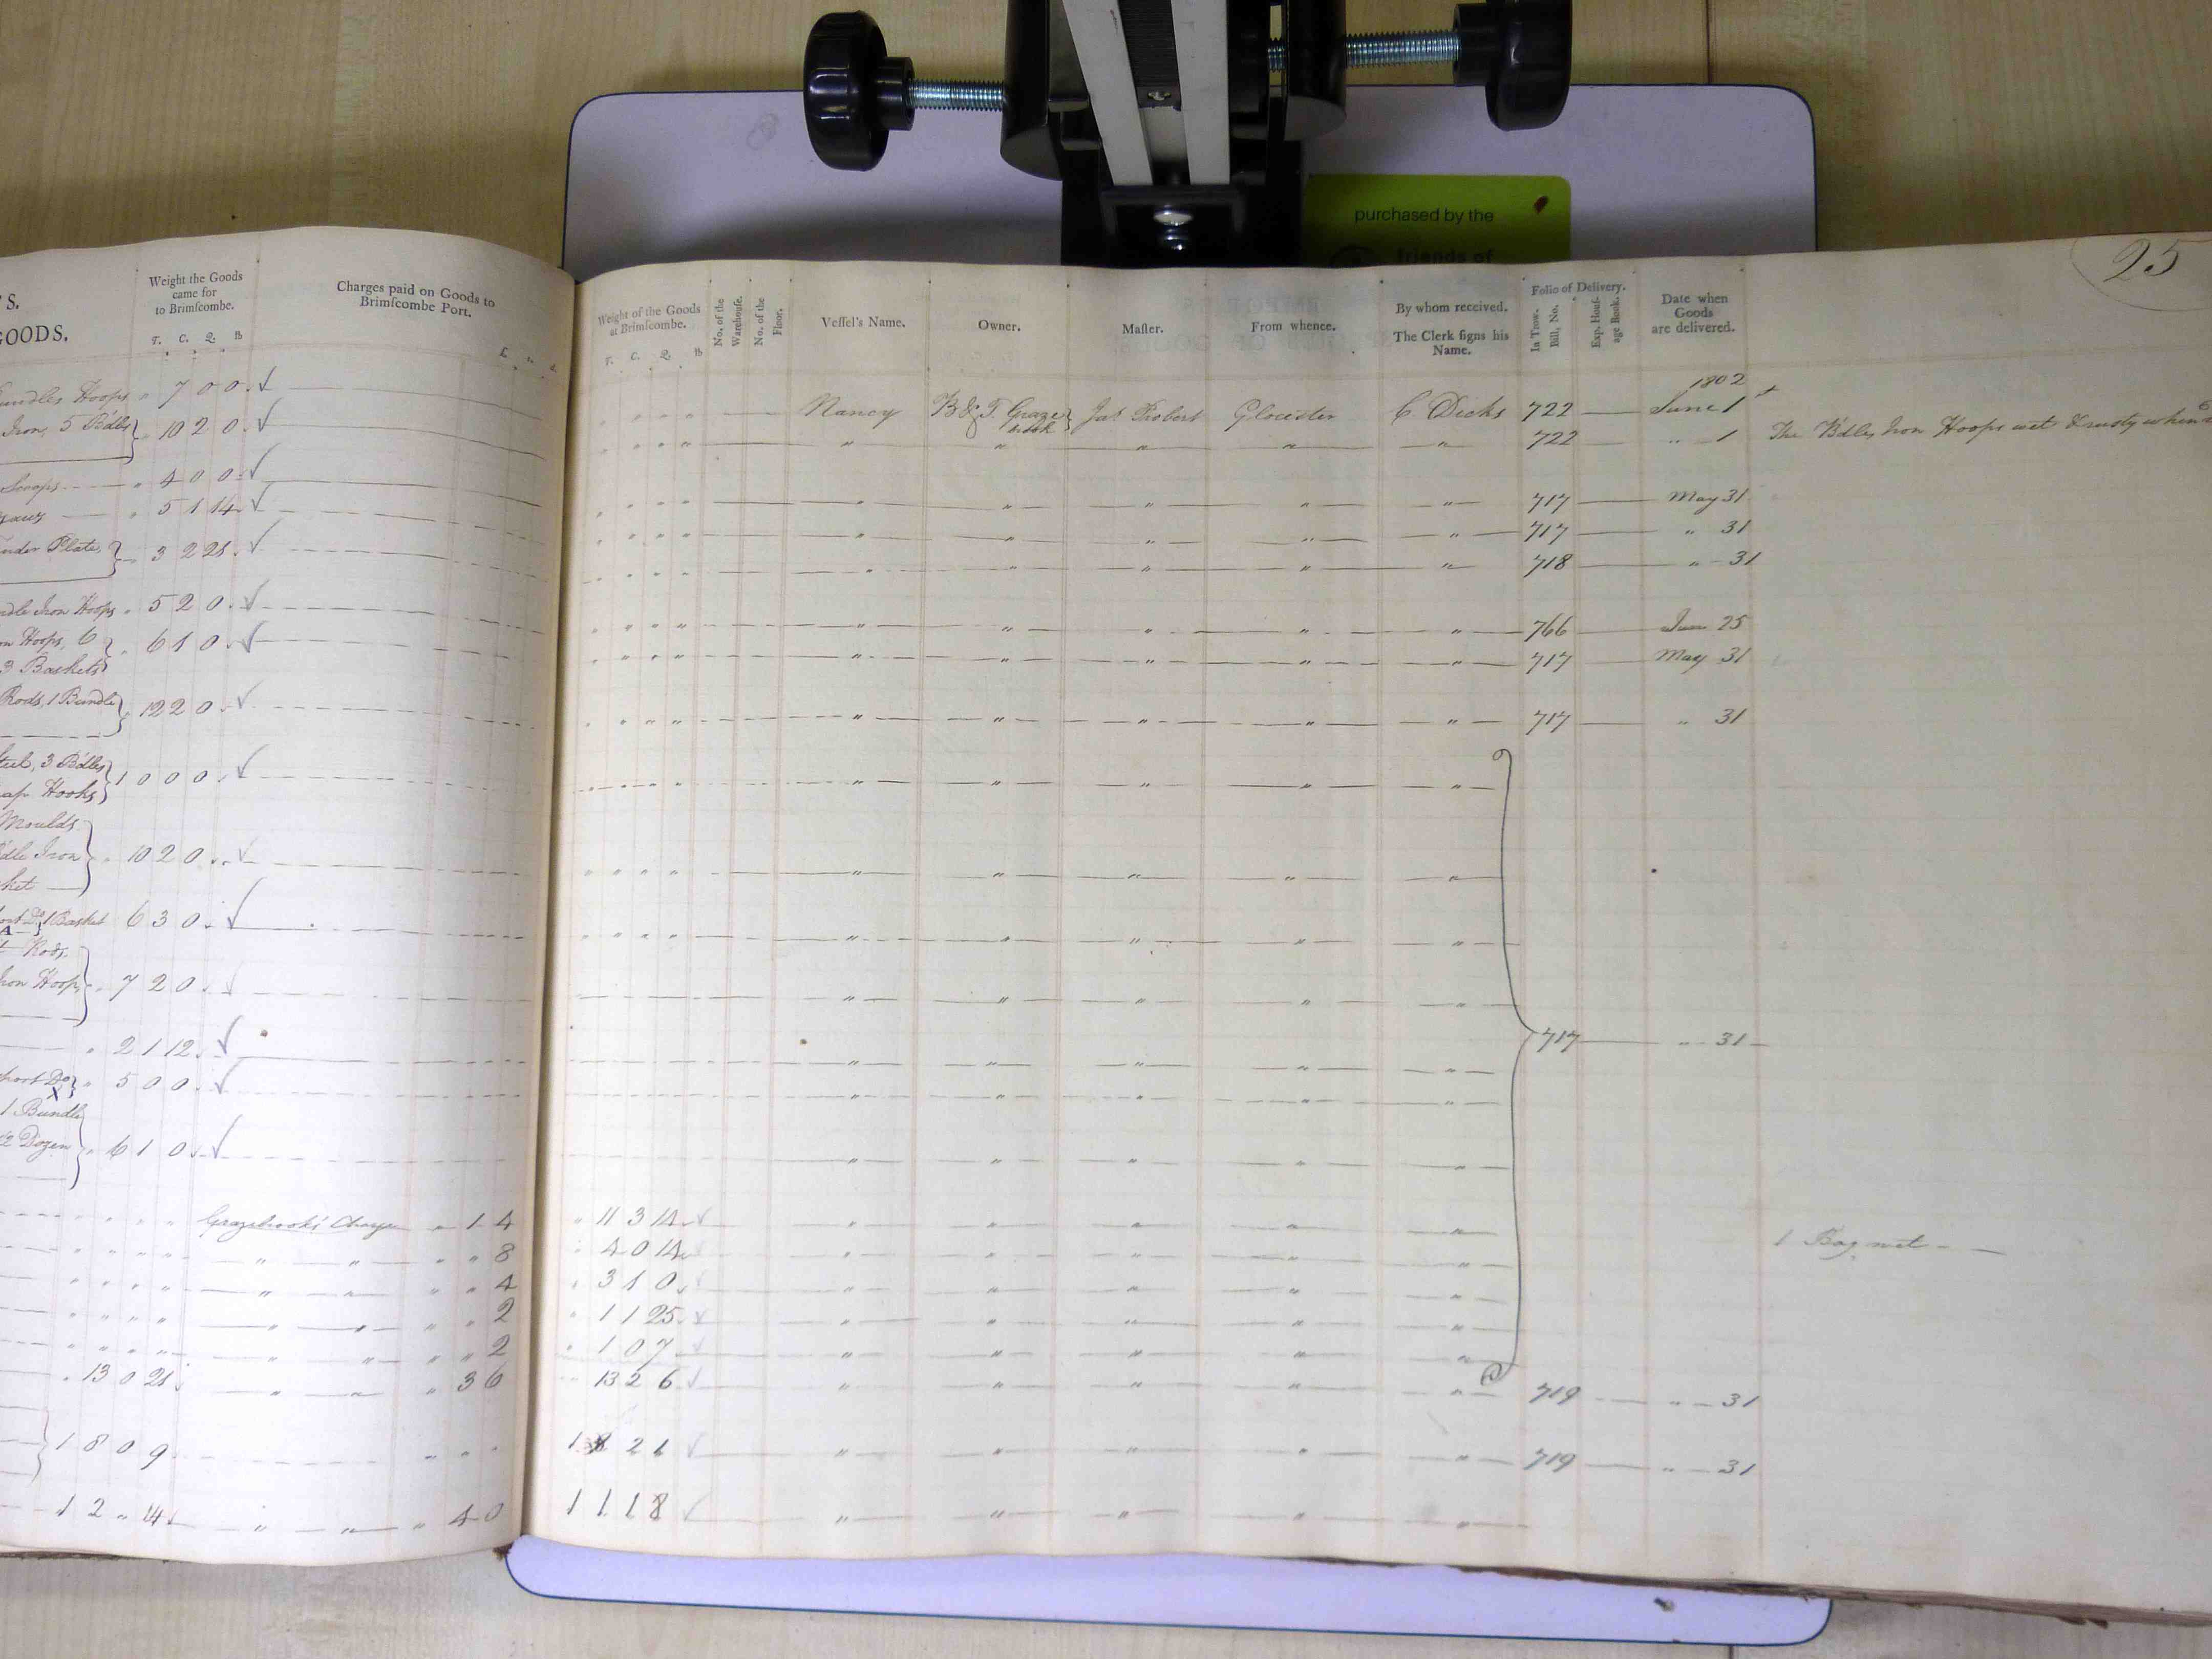 purchased by the
friends of
25
S.
GOODS.
Weight the Goods
came for
to Brimſcombe.
T. C. Q. lb
Charges paid on Goods to
Brimſcombe Port.
Weight of the Goods
at Brimſcombe.
T. C. Q. lb
No. of the
Warehouſe.
No. of the
Floor.
Veſſel's Name.
Owner.
Maſter.
From whence.
By whom received.
The Clerk ſigns his
Name.
Folio of Delivery.
In Trow.
Bill, No.
Exp. Houſ-
age Book.
Date when
Goods
are delivered.
1802
Bundles Hoops " 7 0 0 Nancy B & T Graze Jas Probert Glocester C Dicks 722 June 1
brook
Iron, 5 Bdls " 10 2 0 " " " " " 722 " 1 The Bdls Iron Hoops wet & rusty when
" 4 0 0 " " " " " 717 May 31
" 5 1 14 " " " " " 717 " 31
Plates 3 2 21 " " " " " 718 " 31
Iron Hoops " 5 2 0 " " " " " 766 June 25
Hoops, 6 " 6 1 0 " " " " " 717 May 31
3 Baskets
Rods, 1 Bundle 12 2 0 " " " " " 717 " 31
3 Bdles 1 0 0 0 " " " " "
Hooks
Moulds
Iron " 10 2 0 " " " " "
1 Basket 6 3 0 " " " " "
A
Rods
Iron Hoop " 7 2 0 " " " " "
717 " 31
" 2 1 12 " " " " "
Short Do " 5 0 0 " " " " "
X
1 Bundle
2 Dozen " 6 1 0 " " " " "
Grazebrook's Charge " 1 4 " 11 3 14 " " " " "
" " " " 8 " 4 0 14 " " " " " 1 Bag wet
" " " " 4 " 3 1 0 " " " " "
" " " " 2 " 1 1 25 " " " " "
" " " " 2 " 1 0 7 " " " " "
" 13 0 21 " " " 3 6 " 13 2 6 " " " " " 719 " 31
1 8 0 9 " " " " " 719 " 31
1 2 " 14 " " " 4 0 1 1 1 8 " " " " "